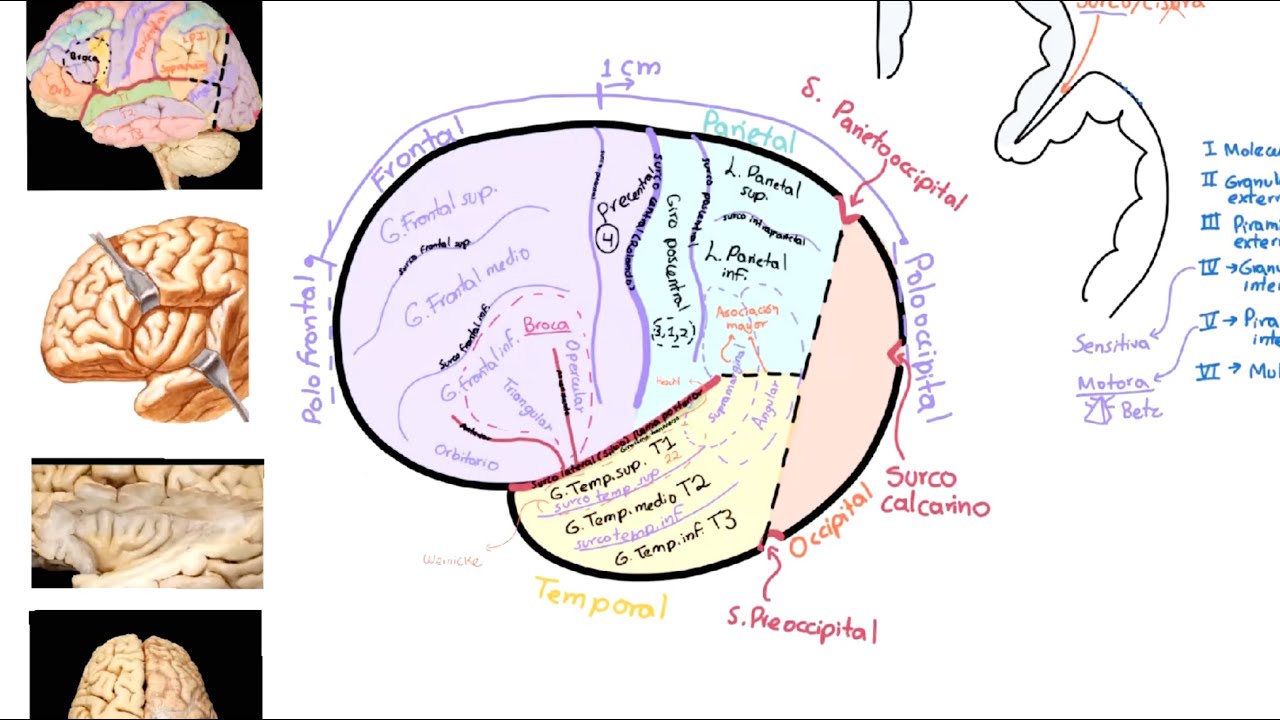 Broca
Orb
LPI
Supramarg
T2
T3
1 cm
Frontal
Parietal
S. Parietooccipital
Polo frontal
Polo occipital
G. Frontal sup.
surco frontal sup.
G. Frontal medio
Surco frontal inf.
G. frontal inf.
Broca
Triangular
Opercular
Orbitario
Precentral
4
surco central (Rolando)
Giro postcentral
(3,1,2)
surco postcentral
L. Parietal
sup.
surco intraparietal
L. Parietal
inf.
Asociación
mayor
Supramarginal
Angular
Heschl
Surco lateral (Silvio) Rama posterior
G. Temp. sup. T1
22
surco temp. sup
G. Temp. medio T2
surco temp. inf
G. Temp. inf. T3
Wernicke
Temporal
Occipital
S. Preoccipital
Surco
calcarino
Surco/cisura
I Molecu
II Granul
exter
III Pirami
exter
IV → Granu
inter
V → Pira
inte
VI → Mul
Sensitiva
Motora
Betz